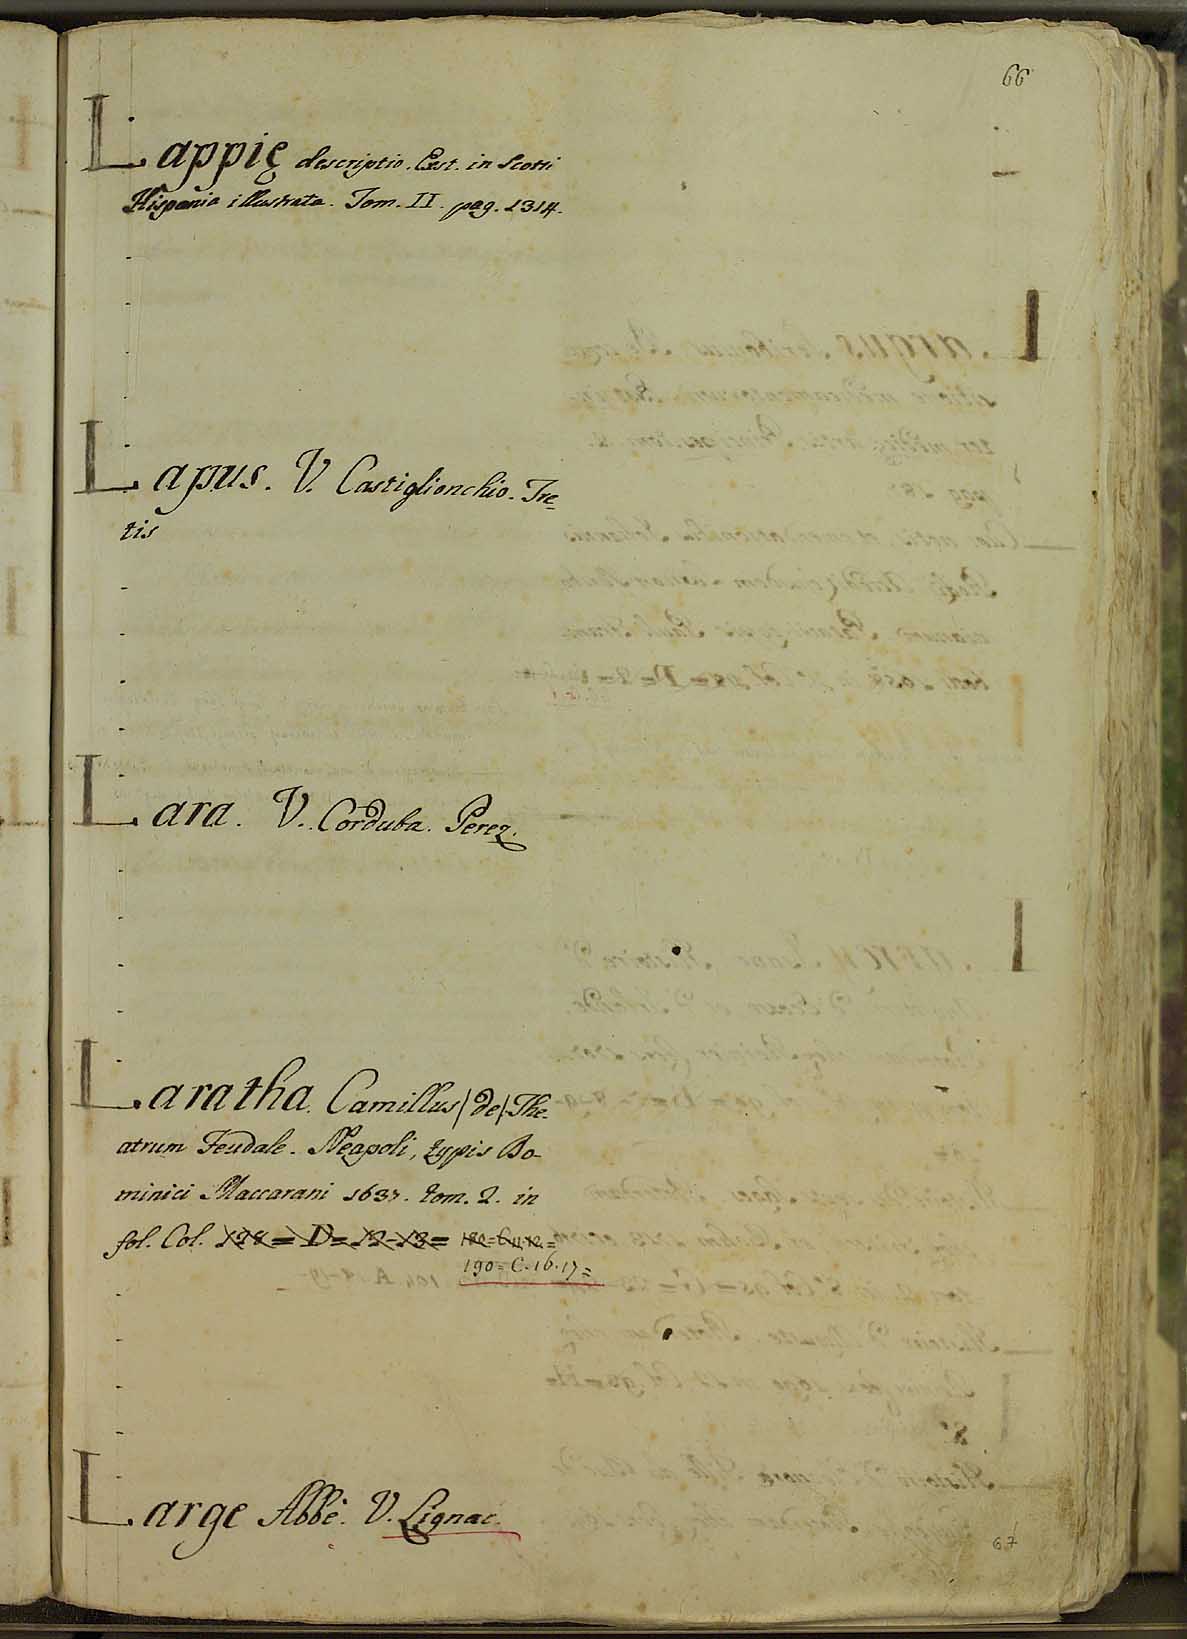 66
Lappię descriptio. Exst. in Scotti
Hispania illustrata. Tom. II. pag. 1314.
Lapus. V. Castiglionchio. Tre-
tis
Lara. V. Corduba. Perez.
Laratha. Camillus /de/ The-
atrum Feudale. Neapoli, typis Do-
minici Maccarani 1637. tom. 2. in
fol. Col. 198 = D = 12-13 =
190 = C. 16. 17 =
Large Abbè. V. Lignac.
67